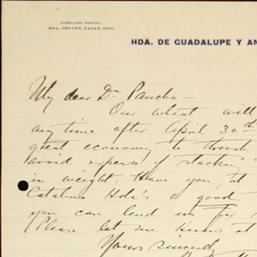 DIRECCIÓN POSTAL
HDA. DE GUADALUPE Y AN
My dear Dn Pancho—
Our wheat will
any time after April 30th
great economy to thresh
avoid expense of stackin'
in weight. Have you, at
Catalina Hda's a good
you can lend us for
Please let me know at
Yours sincerely